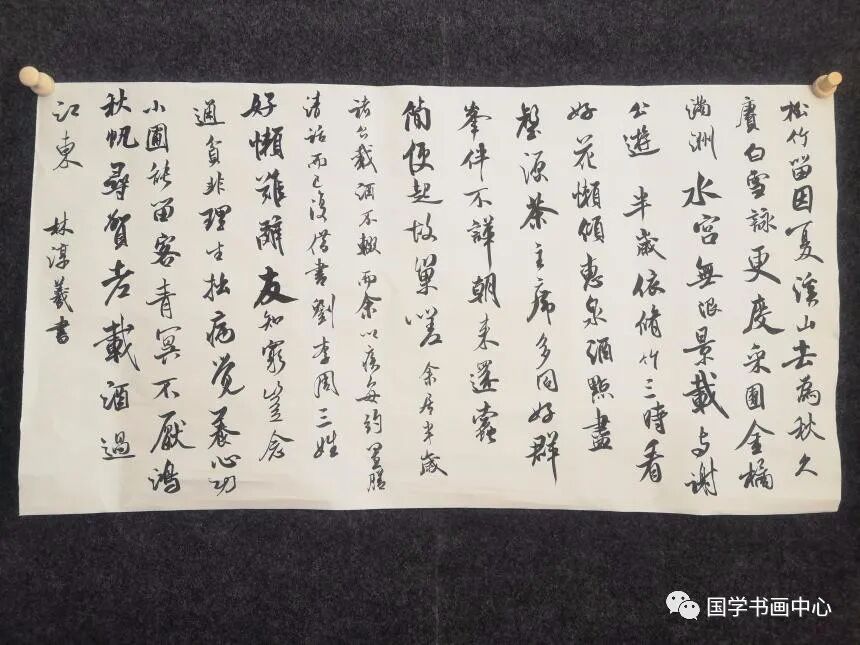 松竹留因夏溪山去為秋久
賡白雪詠更度采團金橘
滿洲水宮無限景載与謝
公遊 半歲依脩竹三時看
好花懶傾惠泉酒點盡
壑源茶主席多同好群
峯伴不譁朝来還蠹
簡便起故巢嗟 余居半歲
諸公載酒不輟而余以疾每約置膳
清話而已復借書劉李周三姓
好懶難辭友知窮豈念
通貧非理生拙病覺養心功
小圃能留客青冥不厭鴻
秋帆尋賀老載酒過
江東 林淳羲書
国学书画中心